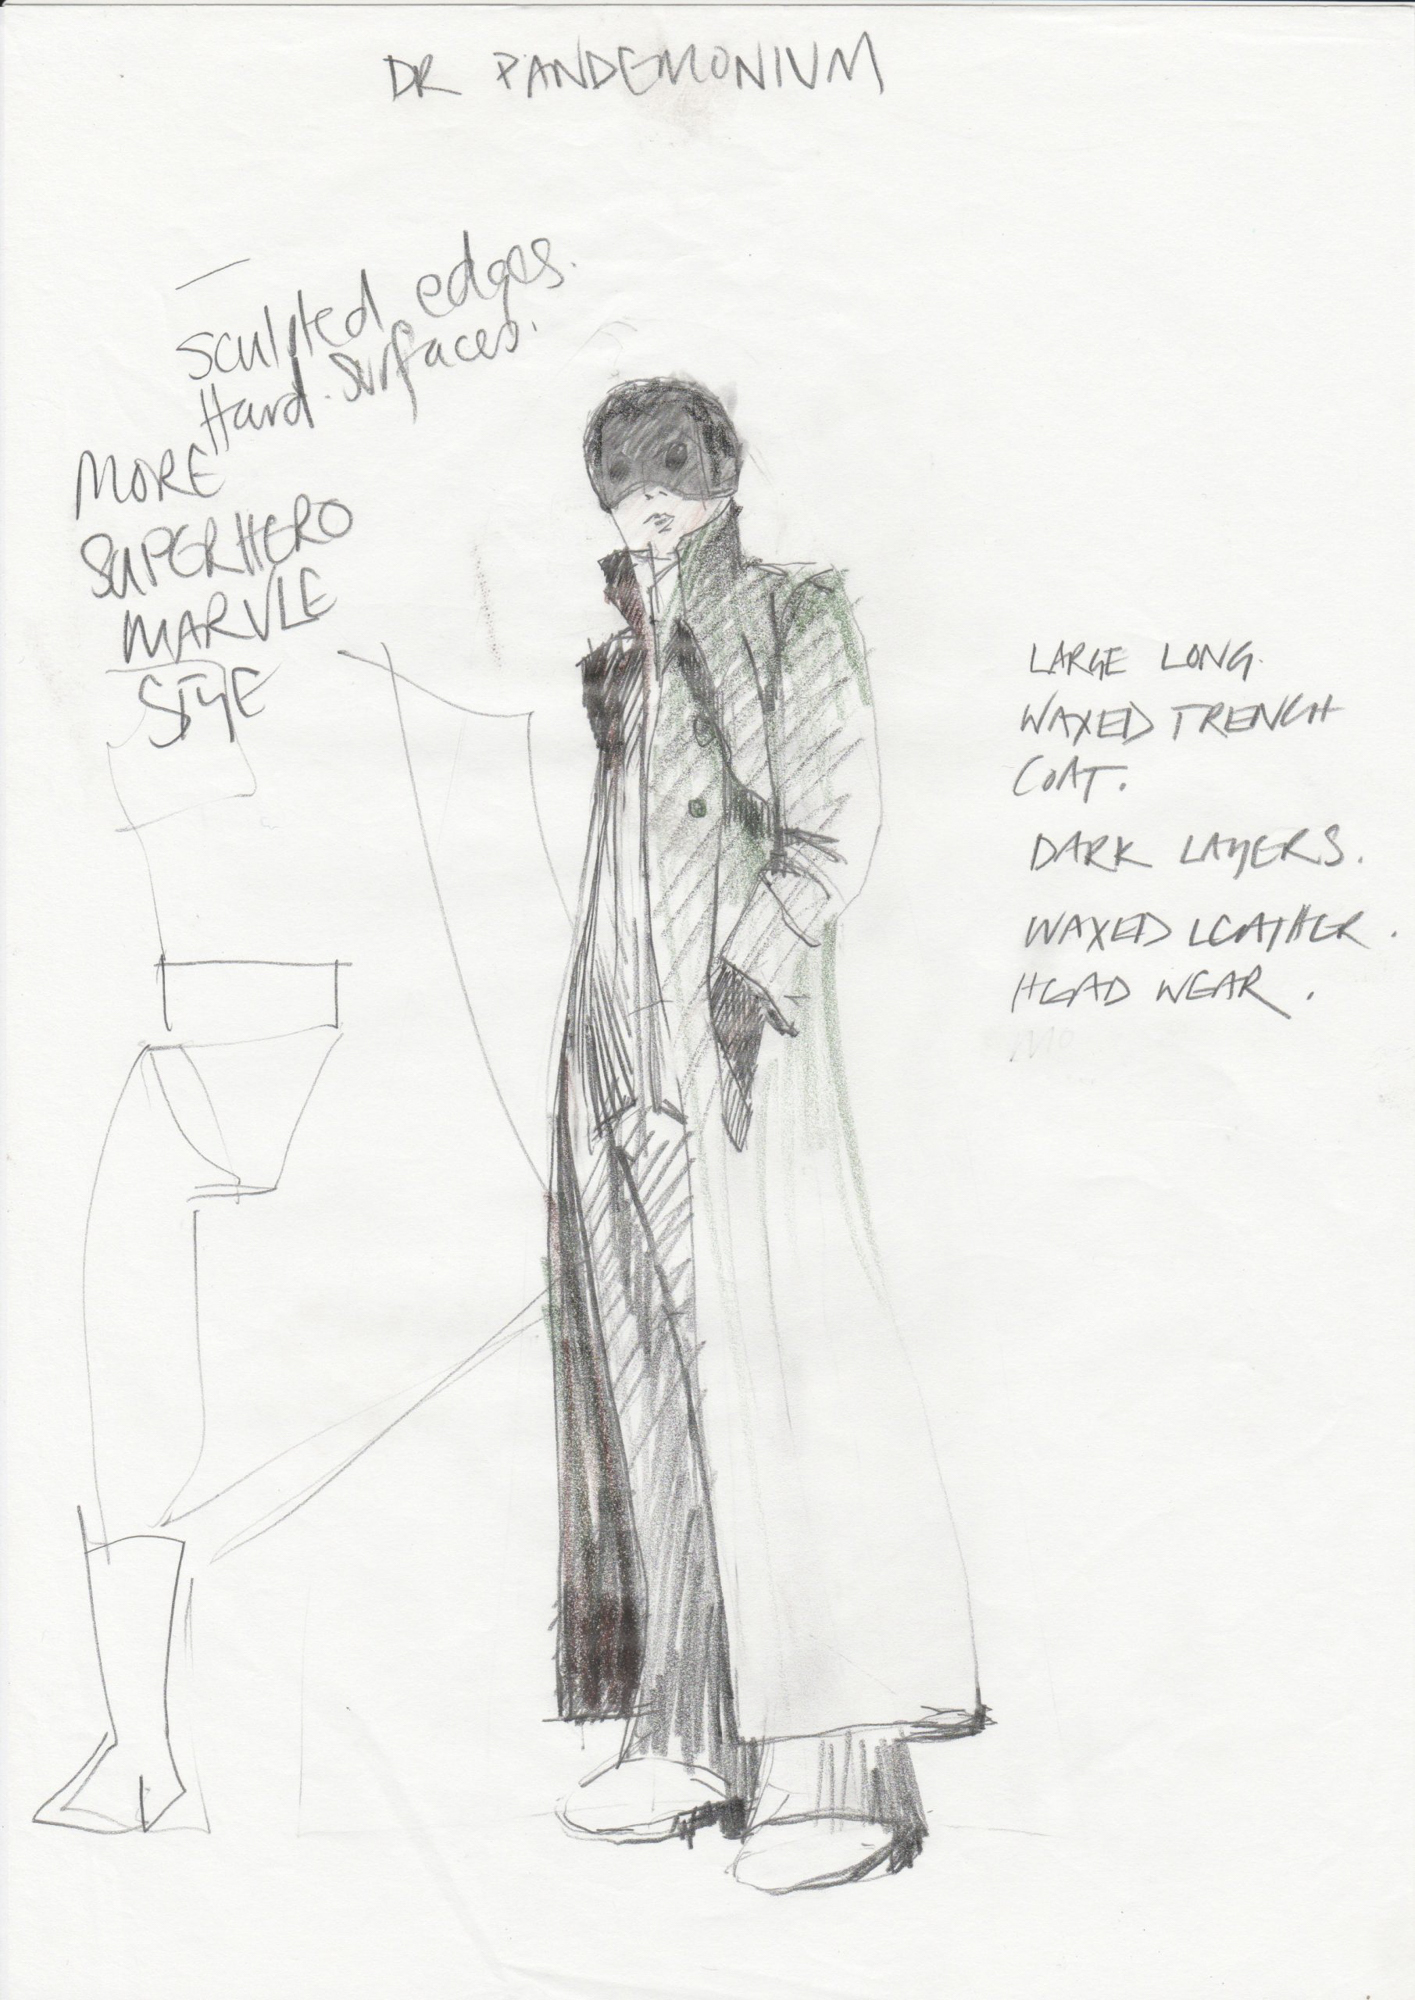 DR PANDEMONIUM
sculpted edges.
Hard surfaces.
MORE
SUPERHERO
MARVLE
STYE
LARGE LONG.
WAXED TRENCH
COAT.
DARK LAYERS.
WAXED LEATHER.
HEAD WEAR.